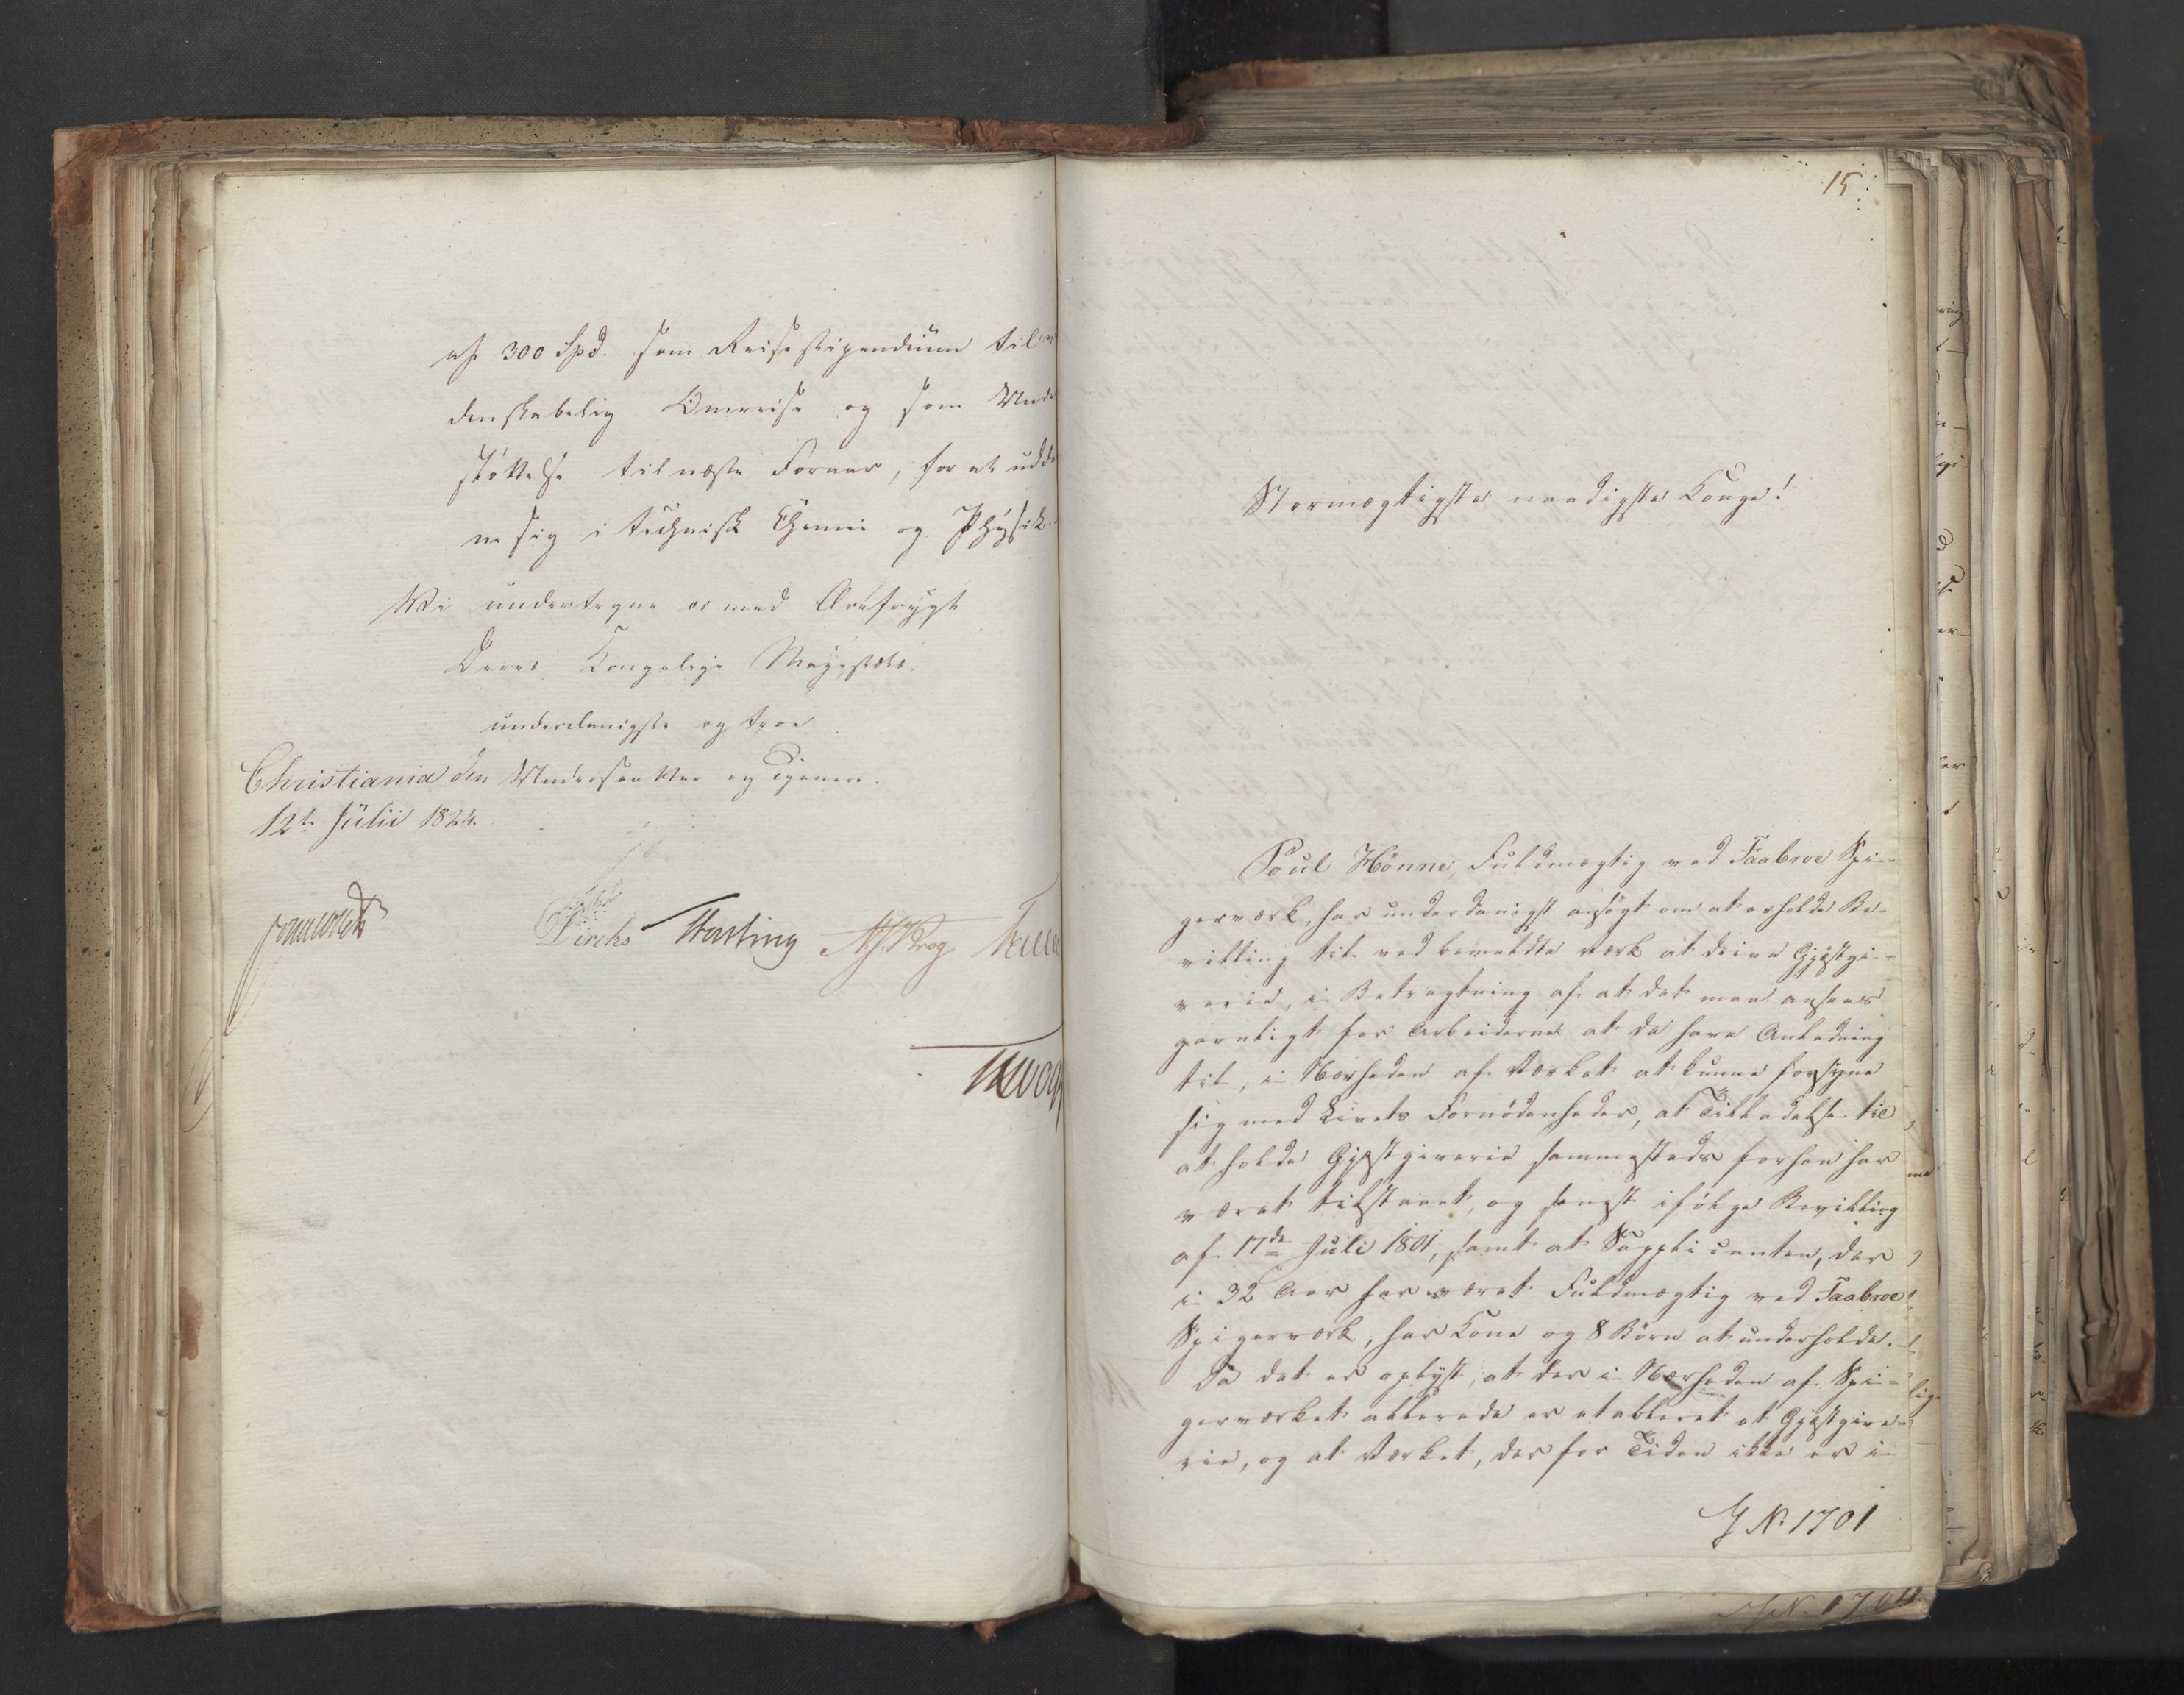 af 300 Spd. som Reisestipendium til
denskabelig Omreise og som Unde
støttelse til næste Foraar, for at udda
ne sig i technisk Chemie og Physik.
Wi undertegne os med Ærefrygt
Deres Kongelige Majestæts
underdanigste og troe
Christiania den Undersaatter og Tjenere.
12te Julii 1824.
Diriks Hasting Krog
15.
Stormægtigste naadigste Konge!
Poul Hönne, Fuldmægtig ved Taabroe Spi-
gerværk, har underdanigst ansögt om at erholde Be-
villing til ved bemeldte Værk at drive Gjæstgi-
verie, i Betragtning af at det maa ansees
gavnligt for Arbeiderne at de have Anledning
til, i Nærheden af Værket at kunne forsyne
sig med Livets Fornödenheder, at Tilladelse til
at holde Gjæstgiverie sammesteds forhen har
været tilstaaet, og senest ifölge Bevilling
af 17de Juli 1801, samt at Supplicanten, der
i 32 Aar har været Fuldmægtig ved Taabroe
Spigerværk, har Kone og 8 Börn at underholde.
Da det er oplyst, at der i Nærheden af Spi-
gerværket allerede er etableret et Gjæstgive-
rie, og at Værket, der for Tiden ikke er i
J N. 1701